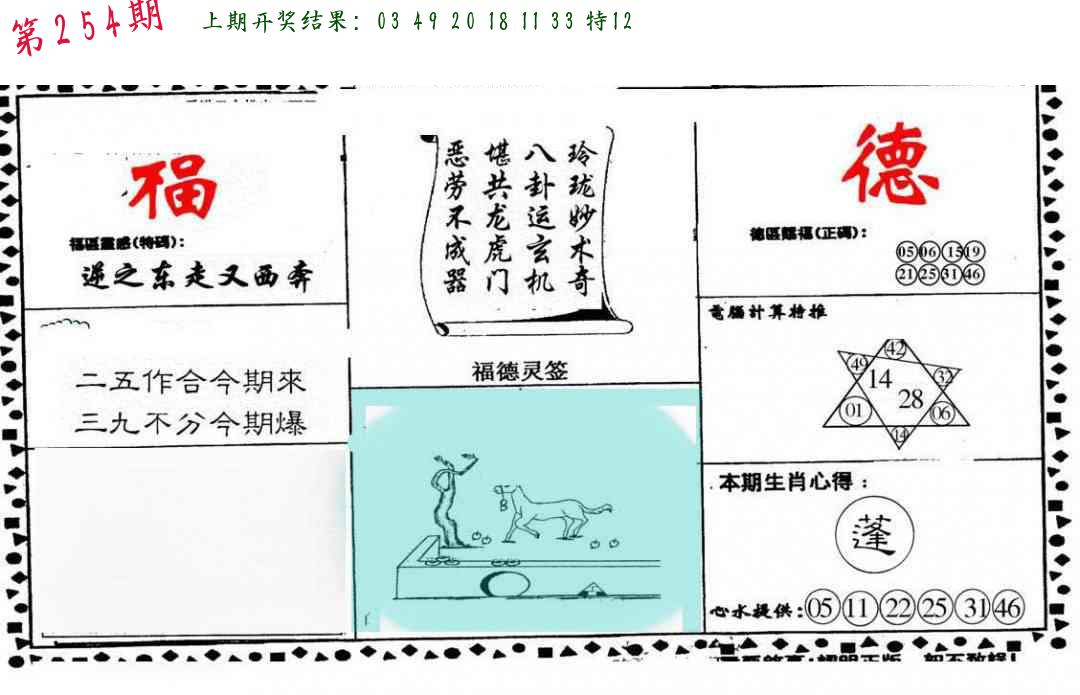 第254期
上期开奖结果：03 49 20 18 11 33 特12
福
福區靈感(特碼)：
逆之东走又西奔
二五作合今期來
三九不分今期爆
玲珑妙术奇
八卦运玄机
堪共龙虎门
恶劳不成器
福德灵签
德
德區賜福(正碼)：
05 06 15 19
21 25 31 46
電腦計算特推
42
49 32
14
28
01 06
14
本期生肖心得：
蓬
心水提供：05 11 22 25 31 46